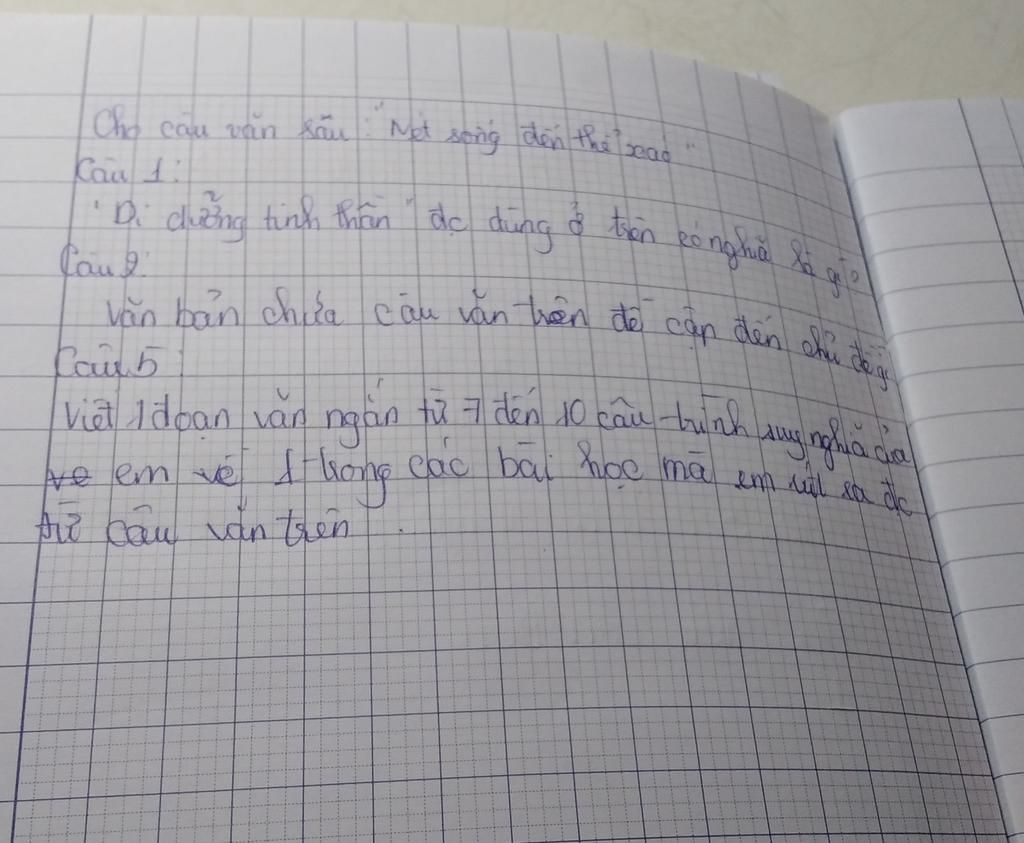 Cho câu văn sau: "Nếp sống đến thế sao"
Câu 1:
"Di dưỡng tinh thần" đc dùng ở trên có nghĩa là gì?
Câu 2:
Văn bản chứa câu văn trên đề cập đến chủ đề gì
Câu 5
Viết 1 đoạn văn ngắn từ 7 đến 10 câu trình suy nghĩ của
về em về 1 trong các bài học mà em rút ra đc
từ câu văn trên.